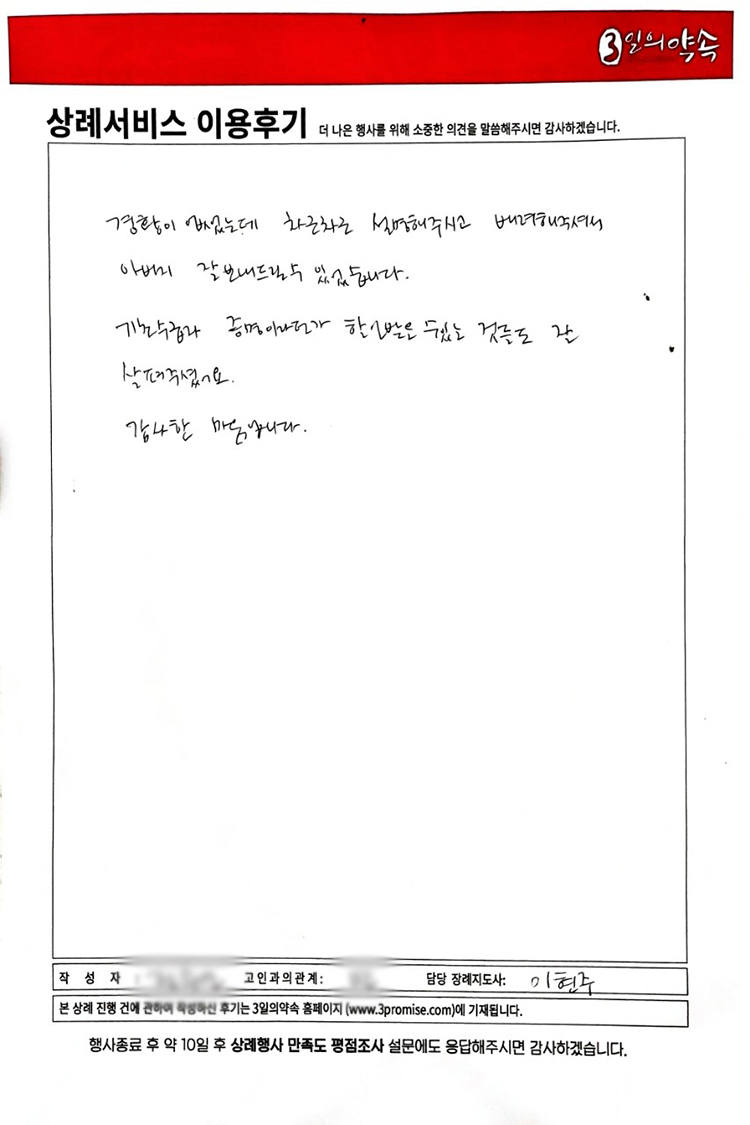 3일의약속
상례서비스 이용후기 더 나은 행사를 위해 소중한 의견을 말씀해주시면 감사하겠습니다.
경황이 없었는데 차근차근 설명해주시고 배려해주셔서
아버지 잘 보내드릴수 있었습니다.
기초수급자 증명이라던가 할인받을 수있는 것들도 잘
살펴주셨어요.
감사한 마음입니다.
작 성 자 고인과의관계: 담당 장례지도사: 이현주
본 상례 진행 건에 관하여 작성하신 후기는 3일의약속 홈페이지 (www.3promise.com)에 기재됩니다.
행사종료 후 약 10일 후 상례행사 만족도 평점조사 설문에도 응답해주시면 감사하겠습니다.